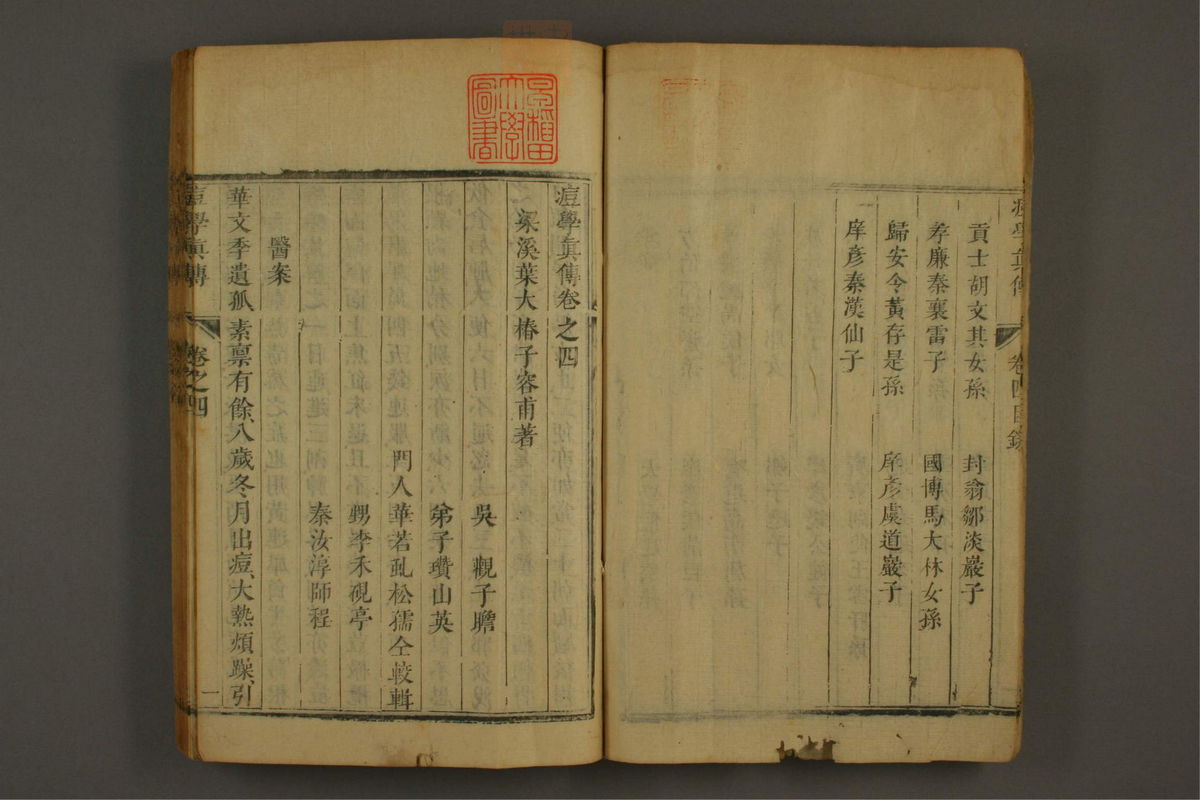 痘學眞傳 卷四目錄
貢士胡文其女孫 封翁鄒淡巖子
孝廉秦襄雷子 國博馬大林女孫
歸安令黃存是孫 庠彥虞道巖子
庠彥秦漢仙子
早稻田大學圖書
痘學眞傳卷之四
梁溪葉大椿子容甫著
吳 觀子瞻
弟子瓚山英
門人華若虬松孺仝較輯
甥李禾硯亭
秦汝淳師程
醫案
華文季遺孤 素禀有餘、八歲冬月出痘、大熱煩躁、引
痘學眞傳 卷之四 一